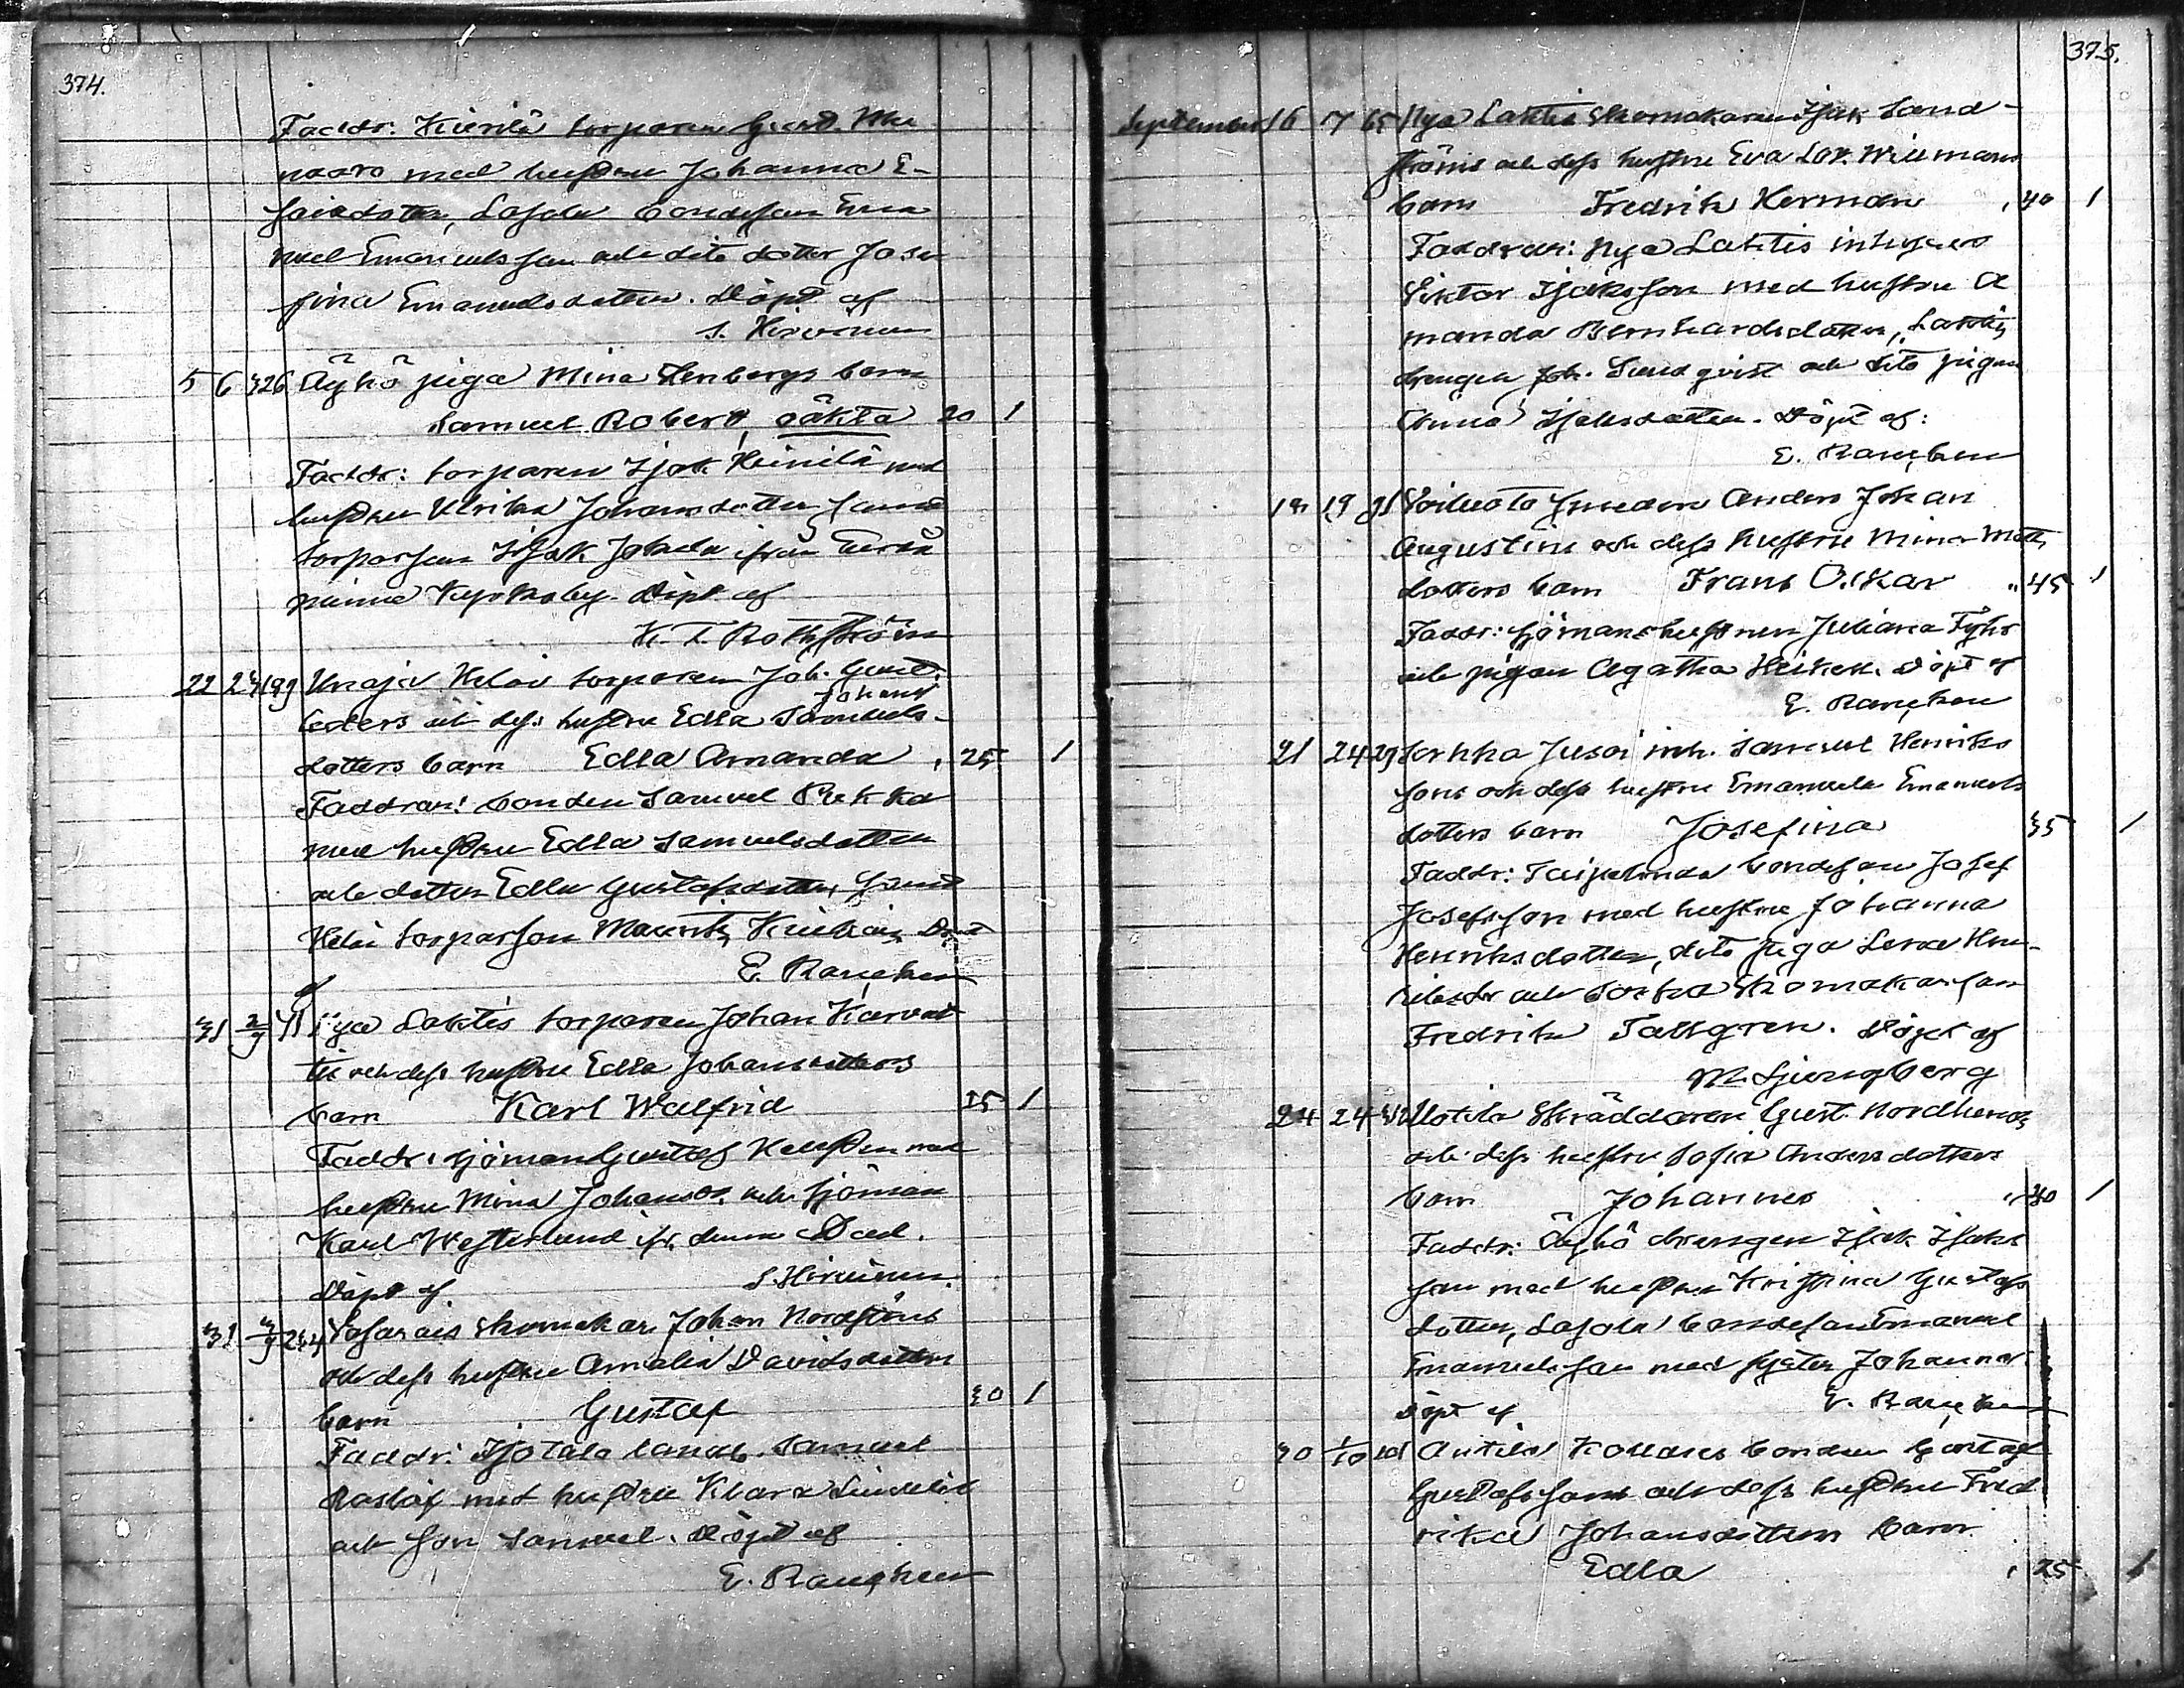 374.
Faddr: Kierilä torparen Gust.
med hustru Johanna E-
saiadotter, Lasola bondeson Ema
nuel Emanuelsson och dito dotter Jose
fina Emanuelsdotter. Döpt af
S. Hirvinen
5 6 326 Äyhö piga Mina Stenbergs barn
Samuel Robert, oäkta 20 1
Faddr: torparen Isak Heinilä med
hustru Ulrika Johansdotter samt
torparson Isak ifrån Eurå
minne Kyrkoby. Döpt af
K. T. Rothström
22 23 189 Unaja Heloi torparen Joh. Gust.
Johans
ceders och dess hustru Edla Samuels-
dotters barn Edla Amanda , 25 1
Faddrar: bonden Samuel Pekka
med hustru Edla Samuelsdotter
och dotter Edla Gustafsdotter, samt
Heloi torparson Mauritz Döpt
af E. Rancken
31 2/9 41 Nya Laktis torparen Johan Karvat
ti och dess hustru Edla Johansdotters
barn Karl Walfrid 25 1
Faddr: sjöman Gustaf med
hustru Mina Johansdr. och sjöman
Karl Westerlund ifr. denna Stad.
Döpt af S. Hirvinen.
31 3/9 244 skomakar. Johan Nordströms
och dess hustru Amalia Davidsdotters
barn Gustaf 30 1
Faddr: Isotalo landb. Samuel
Raslöf med hustru Klara Lindelöf
och son Samuel. Döpt af
E. Rancken
375.
September 16 17 65 Nya Laktis skomakaren Isak Sand-
ströms och dess hustru Eva Lov. Willmans
barn Fredrik Herman , 40 1
Faddrar: Nya Laktis inhyses
Viktor Isaksson med hustru A
manda Bernhardsdotter, Laktis
drengen Joh. Sundqvist och dito pigan
Anna Isaksdotter. Döpt af:
E. Rancken
18 19 91 Voiluoto smeden Anders Johan
Augustins och dess hustru Mina Matts
dotters barn Frans Oskar " 45 1
Faddr: sjömanshustrun Juliana Fyhr
och pigan Agatha Heikek. Döpt af
E. Rancken
21 24 29 Sorkka Jusoi inh. Samuel Henriks
sons och dess hustru Emanuela Emanuels
dotters barn Josefina 35 1
Faddr: Taipalmaa bondeson Josef
Josefsson med hustru Johanna
Henriksdotter, dito piga Lena Hen-
riksdr och Sorkka skomakarson
Fredrik Tallgren. Döpt af
M. Ljungberg
24 24 Uotila Skräddaren Gust. Nordlunds
och dess hustru Sofia Andersdotters
barn Johannes " 30 1
Faddr: Äyhö drengen Isak Isaks
son med hustru Kristina Gustafs
dotter, Lasola bondeson Emanuel
Emanuelsson med syster Johanna.
Döpt af E. Rancken
30 1/10 101 Anttila Kollares bonden Gustaf
Gustafssons och dess hustru Fred
rika Johansdotters barn
Edla , 25 1